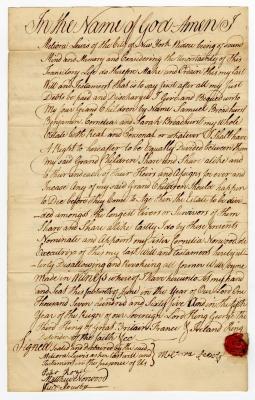 In the Name of God Amen I
of the City of New York being of sound
Mind and Memory and Considering the Uncertainty of this
Transitory Life do make and this my last
Will and Testament that is to say first after all my Just
Debts be paid and Discharged I Give and Bequeath
My Grand Children by Name Samuel
Benjamin Cornelius and Sarah my whole
Estate both real and Personal or whatever I shall have
A Right to hereafter to be Equally Divided between them
my said Grand Children Share and Share alike and
to their and each of their Heirs and Assigns for ever and
Incase Any of my said Grand Children should happen
to Die before they Come to Age then the Estate to be
amongst the longest livers or Survivors of them
Share and Share alike Lastly I do by these presents
Nominate and Appoint my Cornelia
Executrix of this my last will and testament hereby
Disallowing and Revoking all former Wills by me
Made in Witness whereof I have hereunto Set my hand
and Seal this day of June in the Year of Our Lord One
Thousand Seven hundred and Sixty five And in the fifth
Year of the Reign of our Sovereign Lord King George the
third King of Great Britain France & Ireland King
of the faith &c
Signed Sealed and delivered by the said
as her last will and
testament in the presence of Us